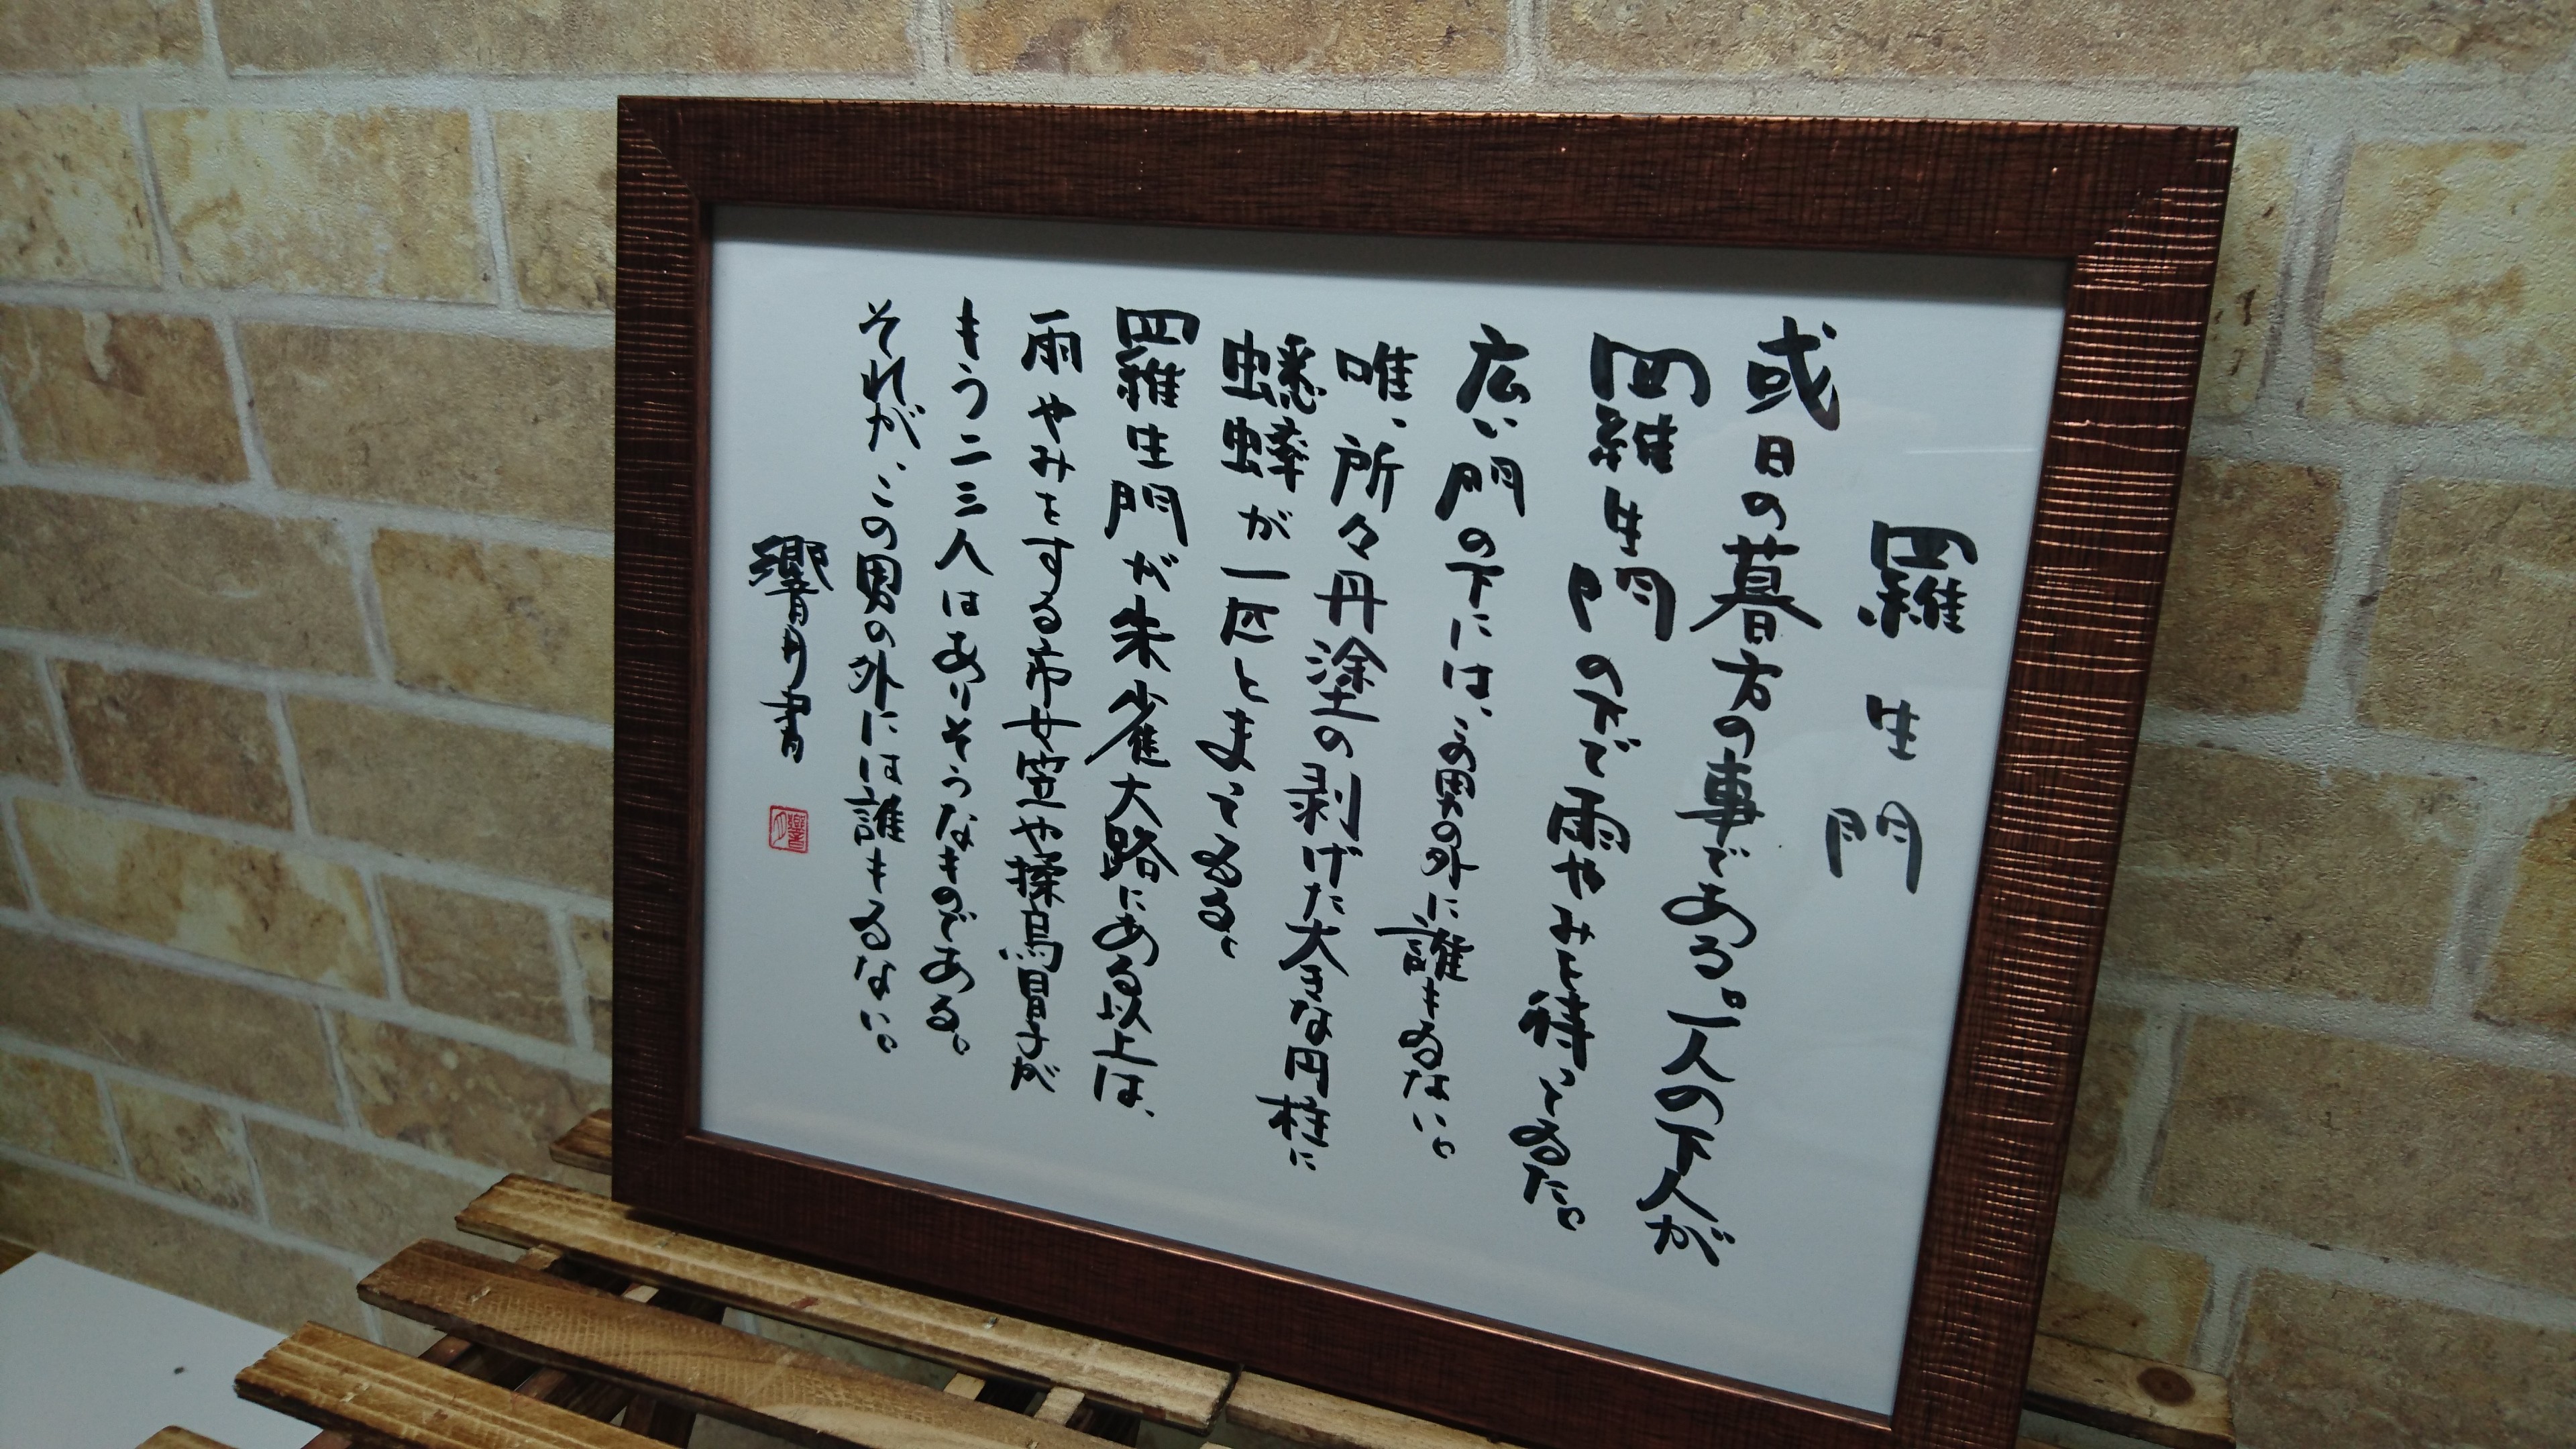 羅生門
或日の暮方の事である。一人の下人が
羅生門の下で雨やみを待ってゐた。
広い門の下には、この男の外に誰もゐない。
唯、所々丹塗の剥げた大きな円柱に
蟋蟀が一匹とまってゐる。
羅生門が朱雀大路にある以上は、
雨やみをする市女笠や揉烏帽子が
もう二三人はありそうなものである。
それが、この男の外には誰もゐない。
響月書
響月